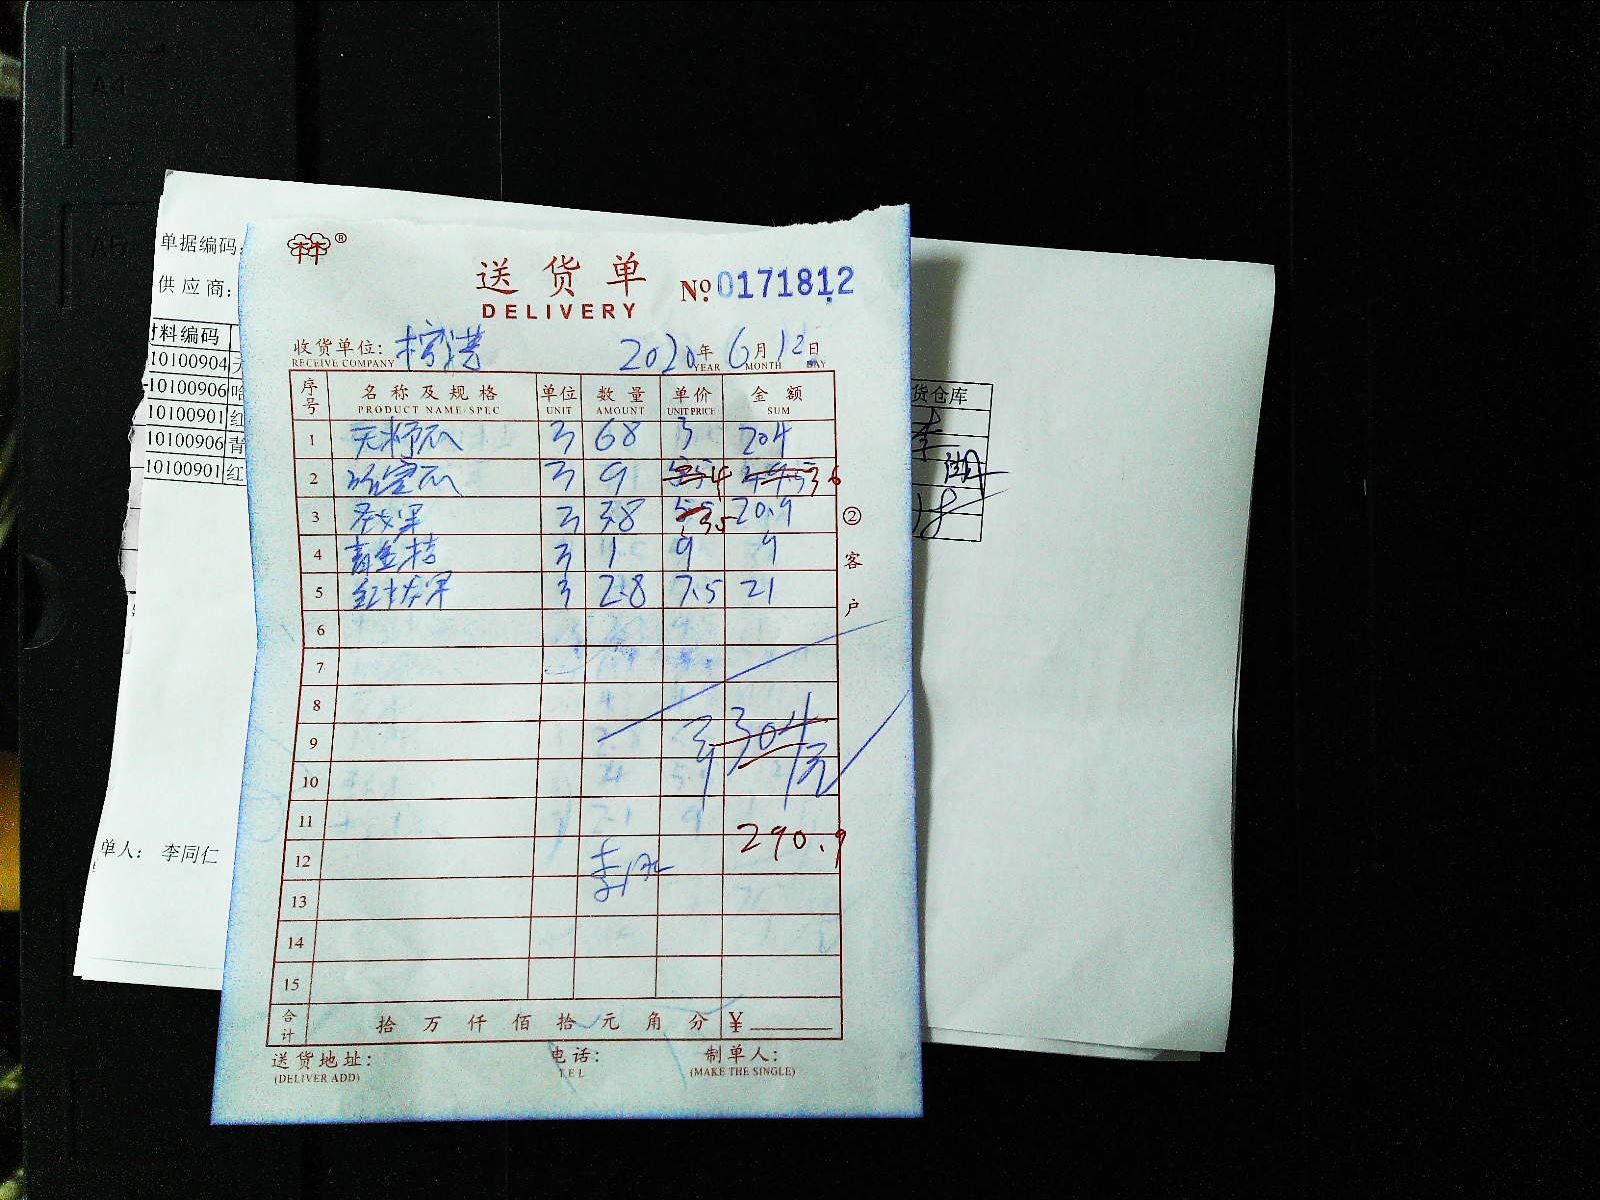 A4
A5
单据编码:
供应商:
材料编码
10100904 无
10100906 哈
10100901 红
10100906 青
10100901 红
单人: 李同仁
货仓库
李
®
送货单 № 0171812
DELIVERY
收货单位: 2020年 6月 12日
RECEIVE COMPANY YEAR MONTH DAY
序号 名称及规格 单位 数量 单价 金额
PRODUCT NAME/SPEC UNIT AMOUNT UNIT PRICE SUM
1 无籽瓜 斤 68 3 204
2 哈密瓜 斤 9 4 36
3 圣女果 斤 3.8 5.5 20.9
4 青金桔 斤 1 9 9
5 红提 斤 2.8 7.5 21
6
7
8
9 304元
10
11 290.9
12 李
13
14
15
合计 拾 万 仟 佰 拾 元 角 分 ¥
②客户
送货地址: 电话: 制单人:
(DELIVER ADD) TEL (MAKE THE SINGLE)